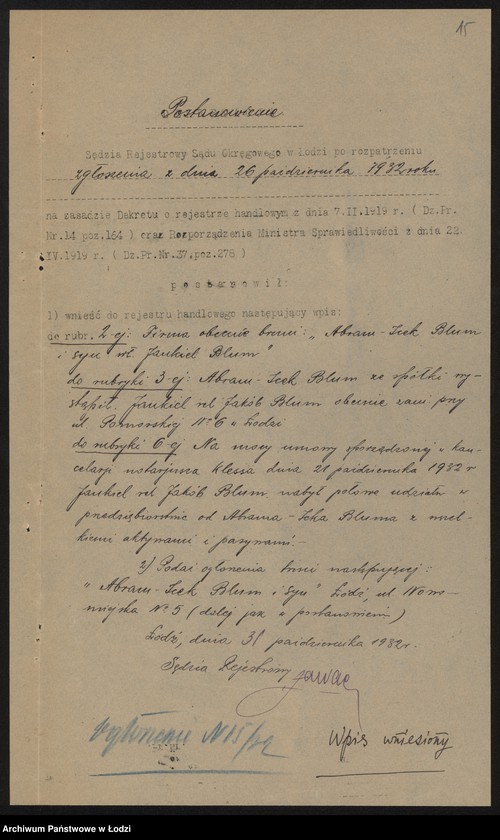 15
Postanowienie
Sędzia Rejestrowy Sądu Okręgowego w Łodzi po rozpatrzeniu
zgłoszenia z dnia 26 października 1932 roku
na zasadzie Dekretu o rejestrze handlowym z dnia 7.II.1919 r. ( Dz.Pr.
Nr.14 poz.164 ) oraz Rozporządzenia Ministra Sprawiedliwości z dnia 22.
IV.1919 r. ( Dz.Pr.Nr.37,poz.276 )
p o s t a n o w i ł :
1) wnieść do rejestru handlowego następujący wpis:
do rubr. 2-ej: Firma obecnie brzmi: „Abram-Icek Blum
i syn wł. Jankiel Blum"
do rubryki 3-ej: Abram-Icek Blum ze spółki wy-
stąpił. Jankiel vel Jakób Blum obecnie zam. przy
ul. Pomorskiej № 6 w Łodzi
do rubryki 6-ej Na mocy umowy sporządzonej w kan-
celarji notarjusza dnia 21 października 1932 r
Jankiel vel Jakób Blum nabył połowę udziału w
przedsiębiorstwie od Abrama-Icka Bluma z wszel-
kiemi aktywami i pasywami.-
2) Podać ogłoszenia treści następującej:
„Abram-Icek Blum i Syn" Łódź, ul. Nowo-
miejska № 5 (dalej jak w postanowieniu)
Łódź, dnia 31 października 1932 r.
Sędzia Rejestrowy
Ogłoszenie N 15/
Wpis wniesiony
Archiwum Państwowe w Łodzi